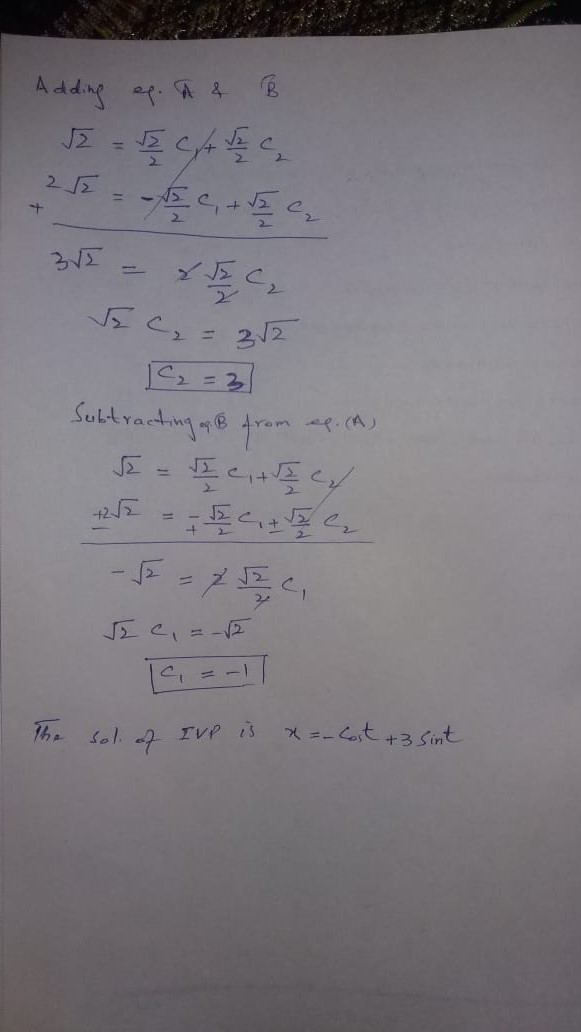 Adding eq. A & B
√2 = √2/2 C₁ + √2/2 C₂
+ 2√2 = -√2/2 C₁ + √2/2 C₂
3√2 = 2 √2/2 C₂
√2 C₂ = 3√2
C₂ = 3
Subtracting eq. B from eq. (A)
√2 = √2/2 C₁ + √2/2 C₂
±2√2 = ∓√2/2 C₁ ± √2/2 C₂
-√2 = 2 √2/2 C₁
√2 C₁ = -√2
C₁ = -1
The sol. of IVP is x = -Cost + 3 Sint